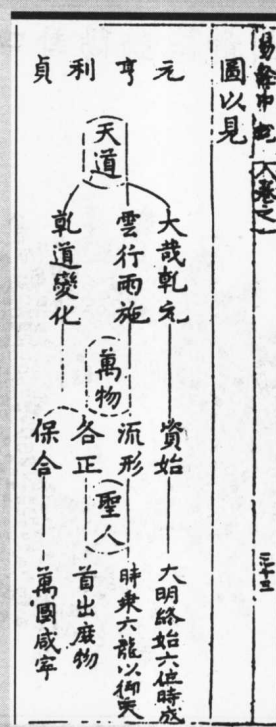 圖以見
元亨利貞
天道
大哉乾元
雲行雨施
乾道變化
萬物
資始
流形
各正
保合
聖人
大明終始六位時成
時乘六龍以御天
首出庶物
萬國咸寧